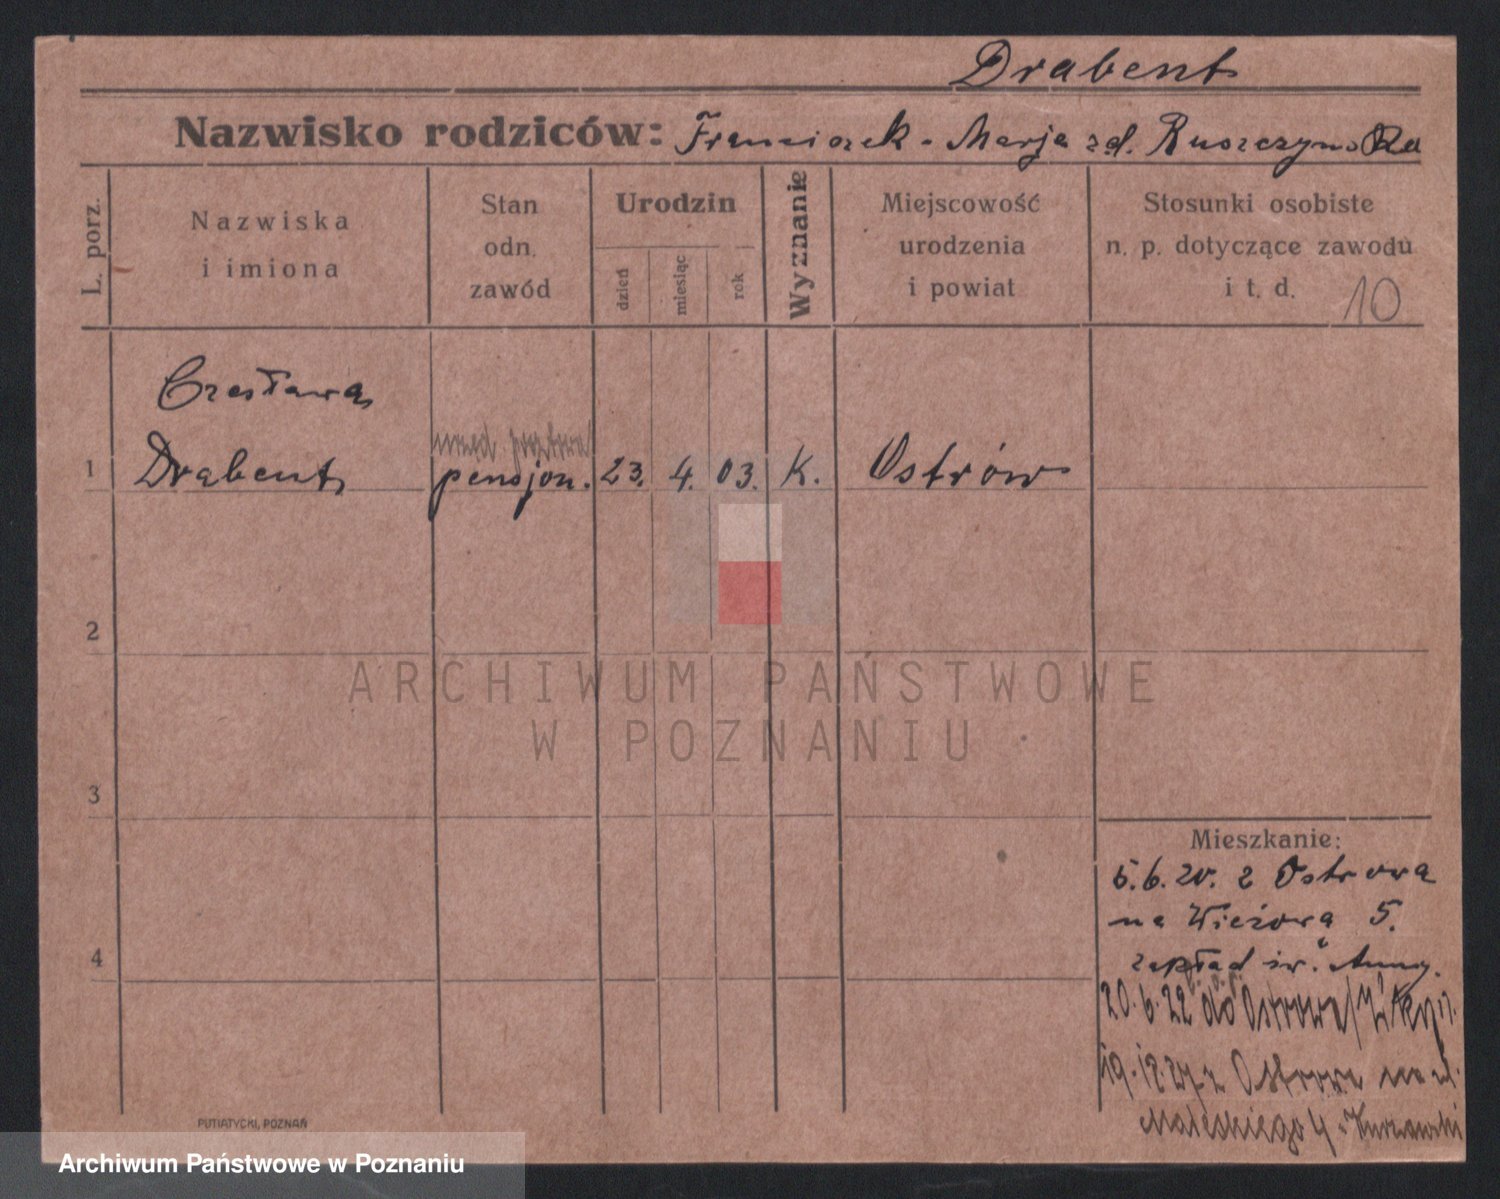 Drabent
Nazwisko rodziców: Franciszek - Marja zd. Ruszczyńska
L. porz.
Nazwiska i imiona
Stan odn. zawód
Urodzin
dzień
miesiąc
rok
Wyznanie
Miejscowość urodzenia i powiat
Stosunki osobiste n. p. dotyczące zawodu i t. d.
10
Czesława
1 Drabent pensjon. 23. 4. 03. K. Ostrów
2
ARCHIWUM PAŃSTWOWE
W POZNANIU
3
Mieszkanie:
5.6.20. z Ostrowa
na Wieżowa 5.
4
zakład św. Anny.
20.6.22 do Ostrowa
19.12.27 z Ostrowa na ul.
Małeckiego 4
PUTIATYCKI, POZNAŃ
Archiwum Państwowe w Poznaniu